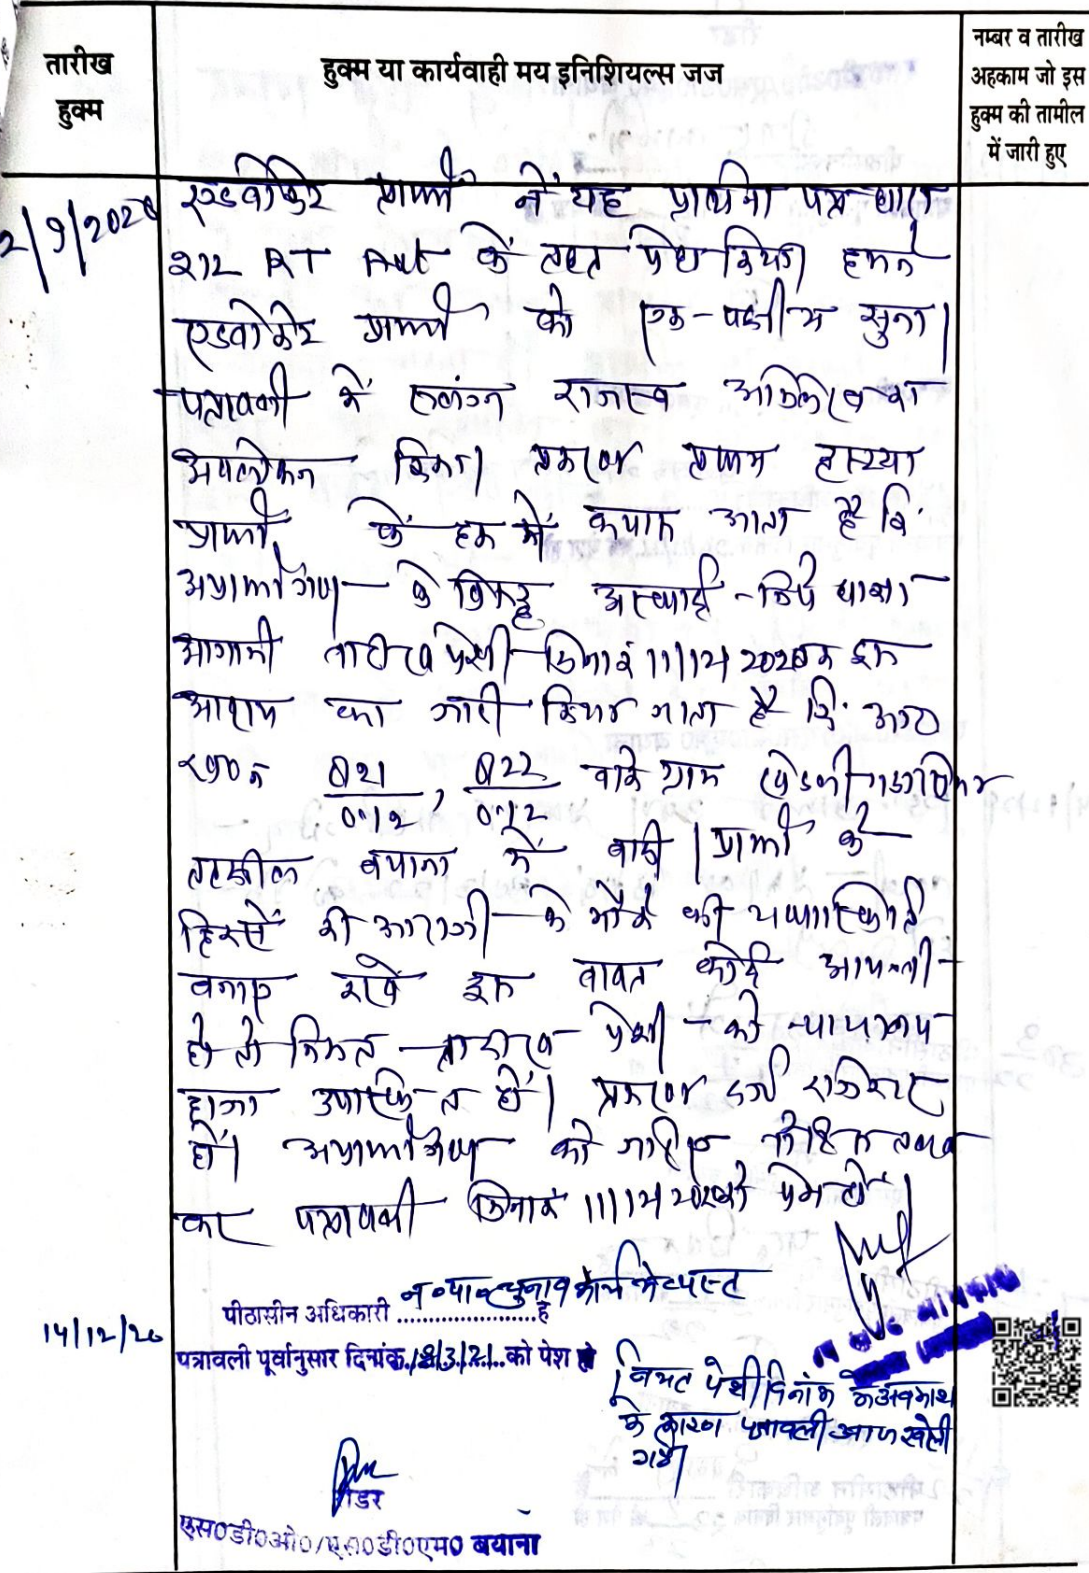 तारीख
हुक्म
हुक्म या कार्यवाही मय इनिशियल्स जज
नम्बर व तारीख
अहकाम जो इस
हुक्म की तामील
में जारी हुए
2/9/2020
एडवोकेट प्रार्थी ने यह प्रार्थना पत्र धारा
212 RT Act के तहत पेश किया। हमने
एडवोकेट प्रार्थी को एक-पक्षीय सुना।
पत्रावली में संलग्न राजस्व अभिलेख का
अवलोकन किया। प्रकरण प्रथम दृष्टया
प्रार्थी के हक में आता है कि
अप्रार्थीगण के विरुद्ध अस्थाई निषेधाज्ञा
आगामी तारीख पेशी दिनांक 11/12/2020 तक इस
आशय का जारी किया जाता है कि
ख०न० 821/0.12, 822/0.12 वाके ग्राम
तहसील बयाना में वादी/प्रार्थी के
हिस्से की आराजी के मौके की यथास्थिति
बनाए रखें इस बाबत कोई आपत्ती
हो तो नियत तारीख पेशी को न्यायालय
उपस्थित हों। प्रकरण दर्ज रजिस्टर
हो। अप्रार्थीगण को नोटिस तलब
कर पत्रावली दिनांक 11/12/2020 को पेश हो।
14/12/20
पीठासीन अधिकारी चुनाव कार्य में व्यस्त है
पत्रावली पूर्वानुसार दिनांक 18/3/21 को पेश हो
नियत पेशी दिनांक के अवकाश
के कारण पत्रावली आज खोली
गई।
रीडर
एस०डी०ओ०/ए०डी०एम० बयाना